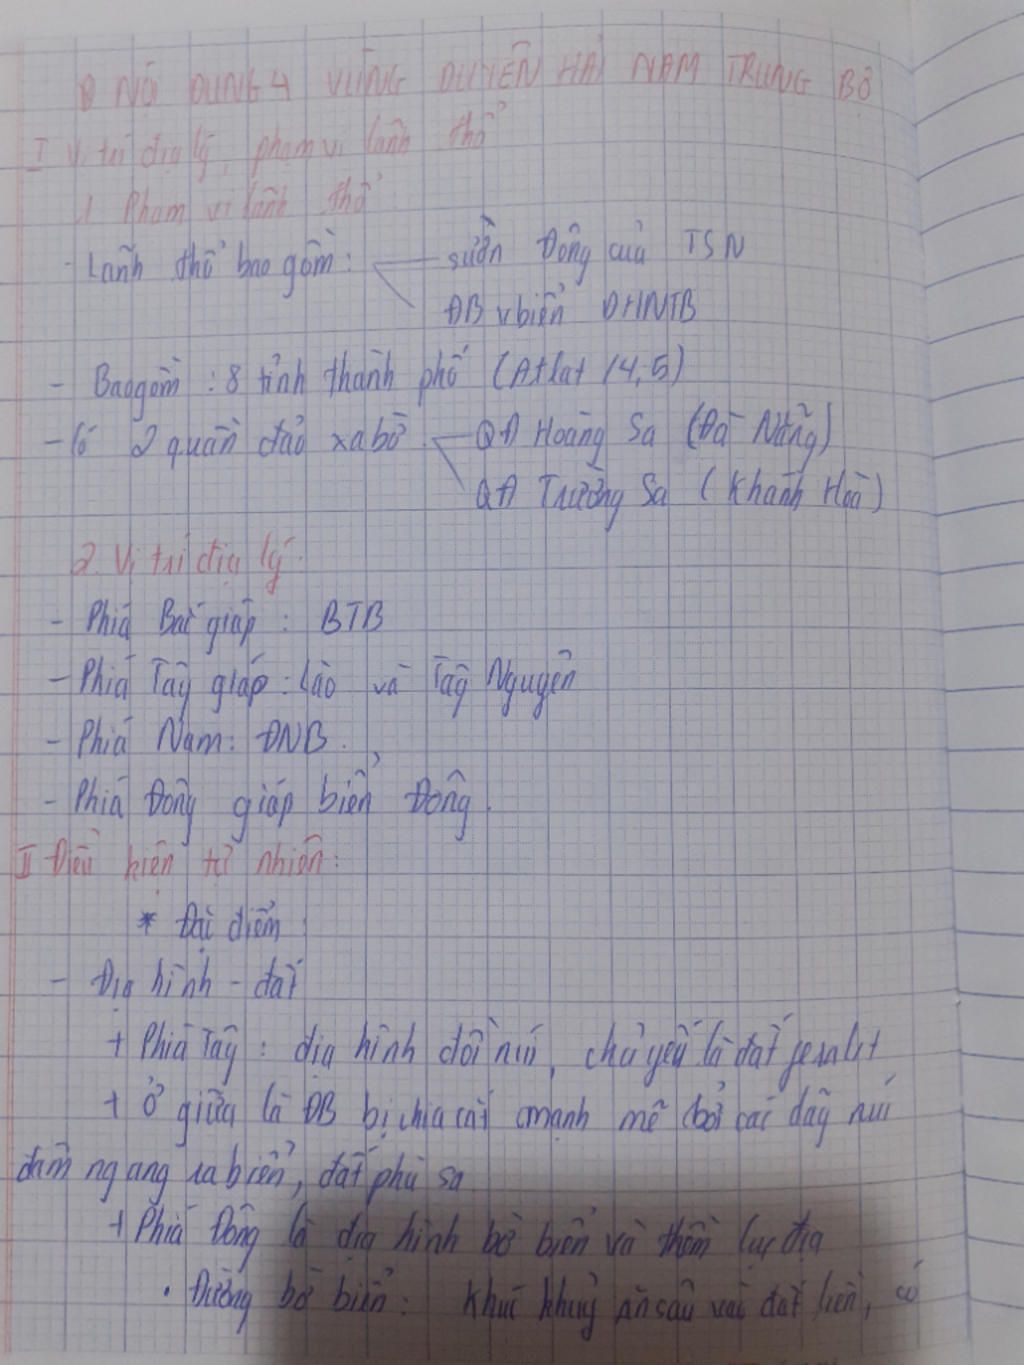 NỘI DUNG 4 VÙNG DUYÊN HẢI NAM TRUNG BỘ
I Vị trí địa lý, phạm vi lãnh thổ
1 Phạm vi lãnh thổ
- Lãnh thổ bao gồm: sườn Đông của TSN
ĐB v biển DHNTB
- Bao gồm: 8 tỉnh thành phố (Atlat 14,5)
- Có 2 quần đảo xa bờ QĐ Hoàng Sa (Đà Nẵng)
QĐ Trường Sa (Khánh Hoà)
2. Vị trí địa lý
- Phía Bắc giáp: BTB
- Phía Tây giáp: Lào và Tây Nguyên
- Phía Nam: ĐNB.
- Phía Đông giáp biển Đông.
II Điều kiện tự nhiên:
* Đặc điểm
- Địa hình - đất
+ Phía Tây: địa hình đồi núi, chủ yếu là đất feralit
+ Ở giữa là ĐB bị chia cắt mạnh mẽ bởi các dãy núi
đâm ngang ra biển, đất phù sa
+ Phía Đông là địa hình bờ biển và thềm lục địa
• Đường bờ biển: Khúc khuỷu ăn sâu vào đất liền, có